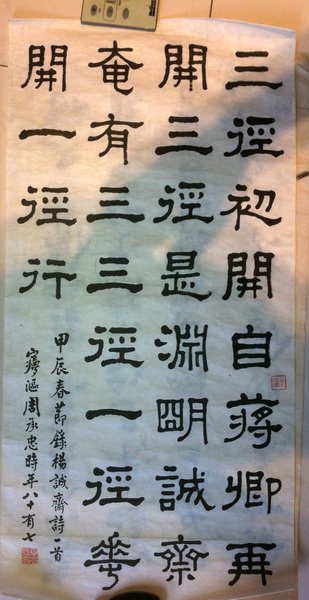 三徑初開自蔣卿再
開三徑是淵明誠齋
奄有三三徑一徑華
開一徑行
甲辰春節錄楊誠齋詩一首
周承忠時年八十有七